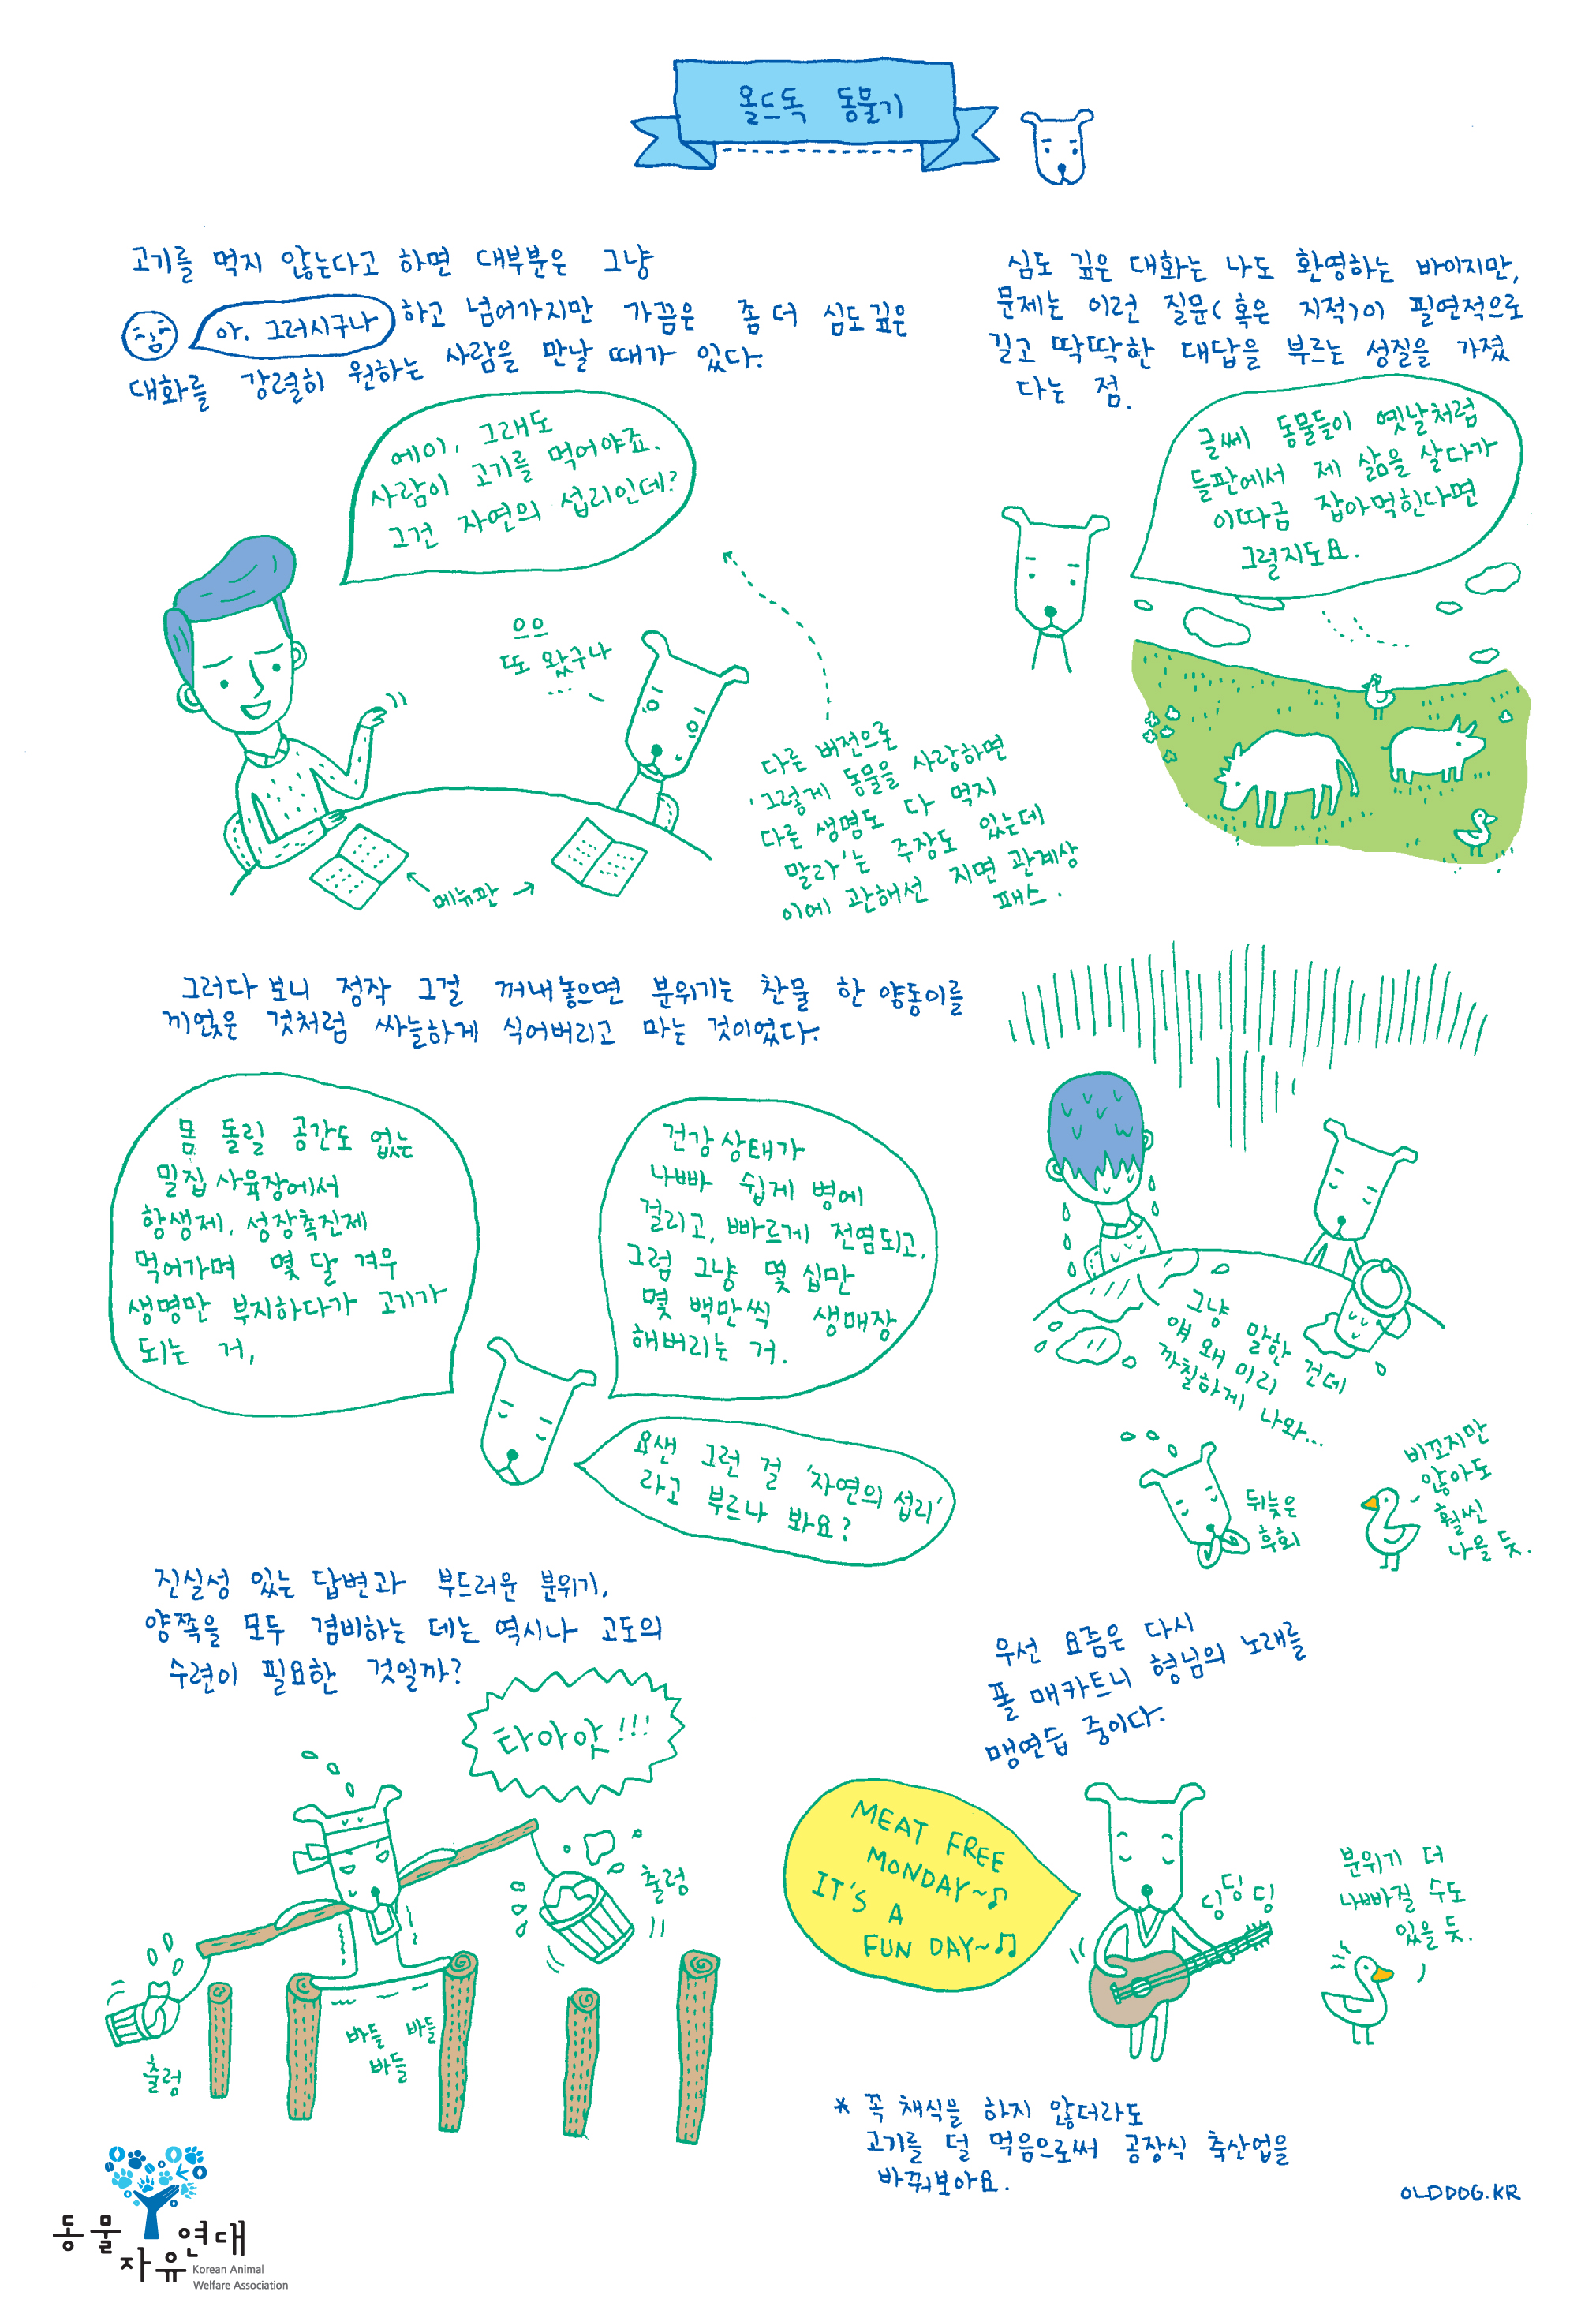 올드독 동물기
고기를 먹지 않는다고 하면 대부분은 그냥
아. 그러시구나 하고 넘어가지만 가끔은 좀 더 심도깊은
대화를 강렬히 원하는 사람을 만날 때가 있다.
에이, 그래도
사람이 고기를 먹어야죠.
그건 자연의 섭리인데?
으으
또 왔구나
...
메뉴판
다른 버전으론
'그렇게 동물을 사랑하면
다른 생명도 다 먹지
말라'는 주장도 있는데
이에 관해선 지면 관계상
패스.
심도 깊은 대화는 나도 환영하는 바이지만,
문제는 이런 질문(혹은 지적)이 필연적으로
길고 딱딱한 대답을 부르는 성질을 가졌
다는 점.
글쎄 동물들이 옛날처럼
들판에서 제 삶을 살다가
이따금 잡아먹힌다면
그럴지도요.
그러다 보니 정작 그걸 꺼내놓으면 분위기는 찬물 한 양동이를
끼얹은 것처럼 싸늘하게 식어버리고 마는 것이었다.
몸 돌릴 공간도 없는
밀집 사육장에서
항생제, 성장촉진제
먹어가며 몇 달 겨우
생명만 부지하다가 고기가
되는 거,
건강상태가
나빠 쉽게 병에
걸리고, 빠르게 전염되고,
그럼 그냥 몇 십만
몇 백만씩 생매장
해버리는 거.
요샌 그런 걸 '자연의 섭리'
라고 부르나 봐요?
그냥 말한 건데
얘 왜 이리
까칠하게 나와...
뒤늦은
후회
비꼬지만
않아도
훨씬
나을 듯.
진실성 있는 답변과 부드러운 분위기,
양쪽을 모두 겸비하는 데는 역시나 고도의
수련이 필요한 것일까?
타아앗!!!
출렁
출렁
바들 바들
바들
우선 요즘은 다시
폴 매카트니 형님의 노래를
맹연습 중이다.
MEAT FREE
MONDAY~♪
IT'S A
FUN DAY~♫
딩딩딩
분위기 더
나빠질 수도
있을 듯.
* 꼭 채식을 하지 않더라도
고기를 덜 먹음으로써 공장식 축산업을
바꿔보아요.
OLDDOG.KR
동물
자유연대
Korean Animal
Welfare Association